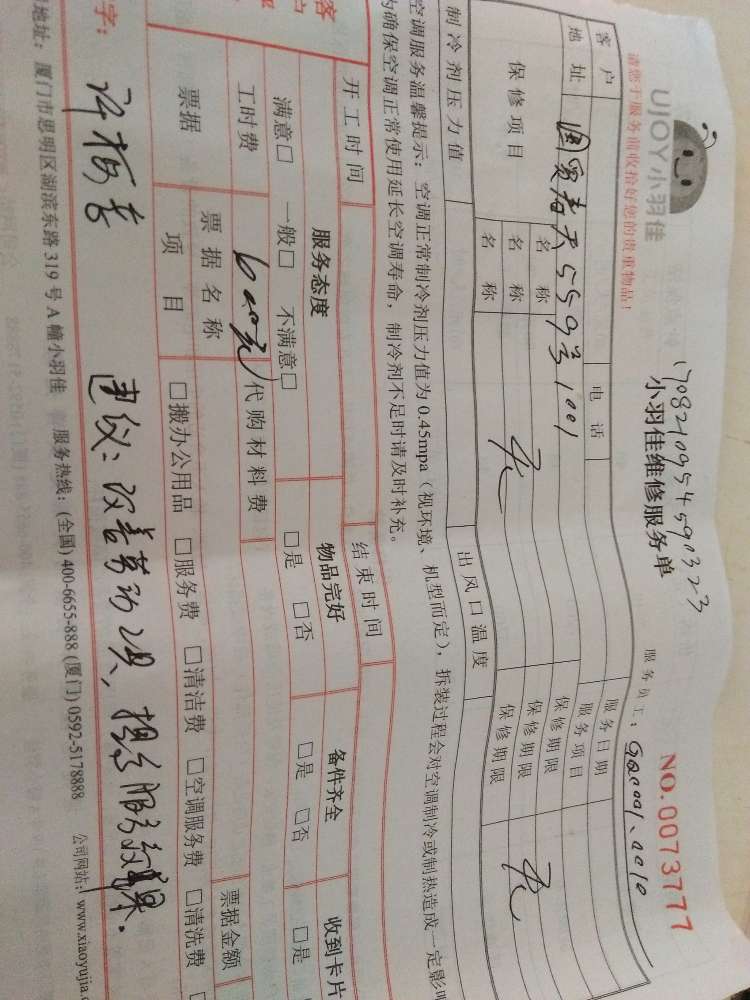 UJOY小羽佳
请您于服务前收拾好您的贵重物品!
17082109545590323
小羽佳维修服务单
NO.0073777
服务员工:
客户 电话 服务日期
地址 559号1001 服务项目
保修项目 名称 保修期限
名称 无 保修期限 无
名称 保修期限
制冷剂压力值 出风口温度
空调服务温馨提示:空调正常制冷剂压力值为0.45mpa(视环境、机型而定),拆装过程会对空调制冷或制热造成一定影响
为确保空调正常使用延长空调寿命,制冷剂不足时请及时补充。
开工时间 结束时间
服务态度 物品完好 备件齐全 收到卡片
满意□ 一般□ 不满意□ □是 □否 □是 □否 □是
工时费 600元 代购材料费
票据 票据名称 票据金额
项目 □搬办公用品 □服务费 □清洁费 □空调服务费 □清洗费
字:
建议:改善劳动工具,提高服务效果.
地址:厦门市思明区湖滨东路319号A幢小羽佳 服务热线:(全国)400-6655-888(厦门)0592-5178888 公司网站:www.xiaoyujia.c